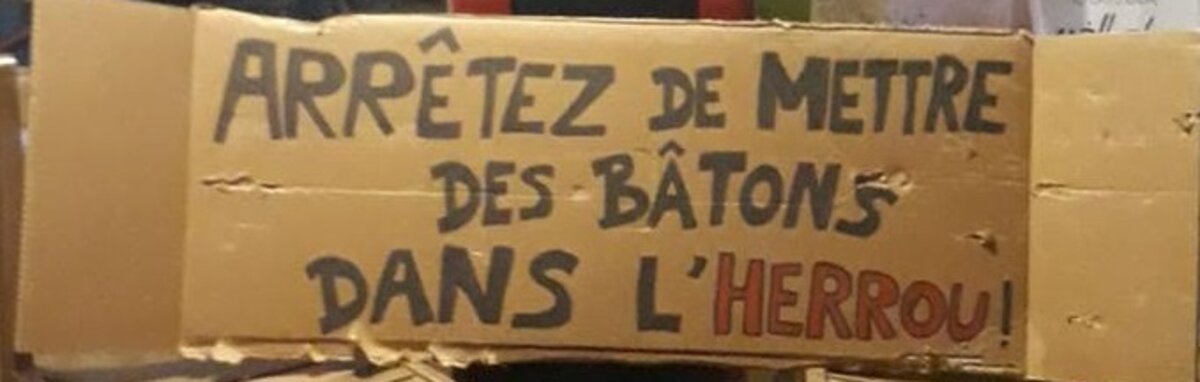 ARRÊTEZ DE METTRE
DES BÂTONS
DANS L'HERROU!